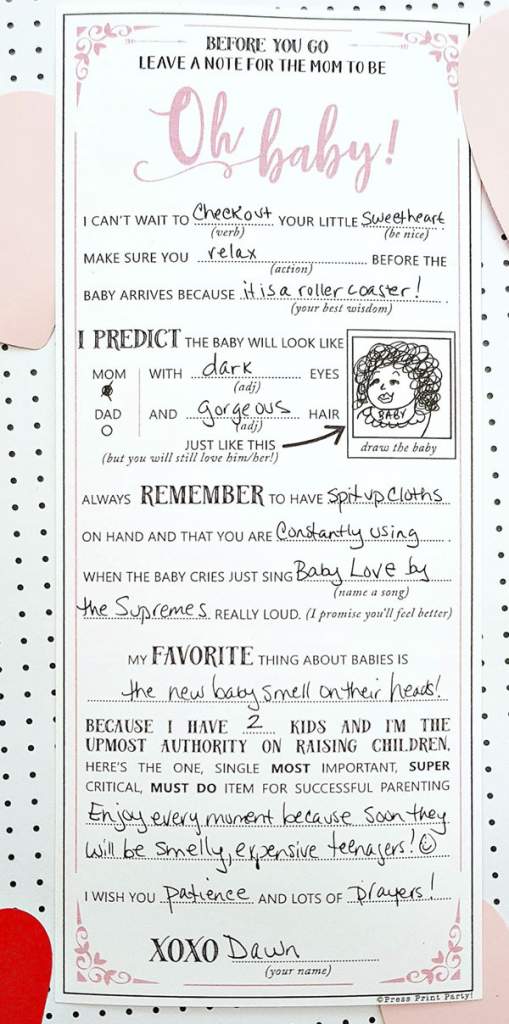 BEFORE YOU GO
LEAVE A NOTE FOR THE MOM TO BE
Oh baby!
I CAN'T WAIT TO Checkout YOUR LITTLE Sweetheart
(verb) (be nice)
MAKE SURE YOU relax BEFORE THE
(action)
BABY ARRIVES BECAUSE it is a roller coaster!
(your best wisdom)
I PREDICT THE BABY WILL LOOK LIKE
MOM WITH dark EYES
(adj)
DAD AND gorgeous HAIR
(adj)
JUST LIKE THIS
(but you will still love him/her!)
BABY
draw the baby
ALWAYS REMEMBER TO HAVE spit up cloths
ON HAND AND THAT YOU ARE Constantly using.
WHEN THE BABY CRIES JUST SING Baby Love by
(name a song)
the Supremes REALLY LOUD. (I promise you'll feel better)
MY FAVORITE THING ABOUT BABIES IS
the new baby smell on their heads!
BECAUSE I HAVE 2 KIDS AND I'M THE
UPMOST AUTHORITY ON RAISING CHILDREN,
HERE'S THE ONE, SINGLE MOST IMPORTANT, SUPER
CRITICAL, MUST DO ITEM FOR SUCCESSFUL PARENTING
Enjoy every moment because soon they
will be smelly, expensive teenagers! ☺
I WISH YOU patience AND LOTS OF prayers!
XOXO Dawn
(your name)
©Press Print Party!